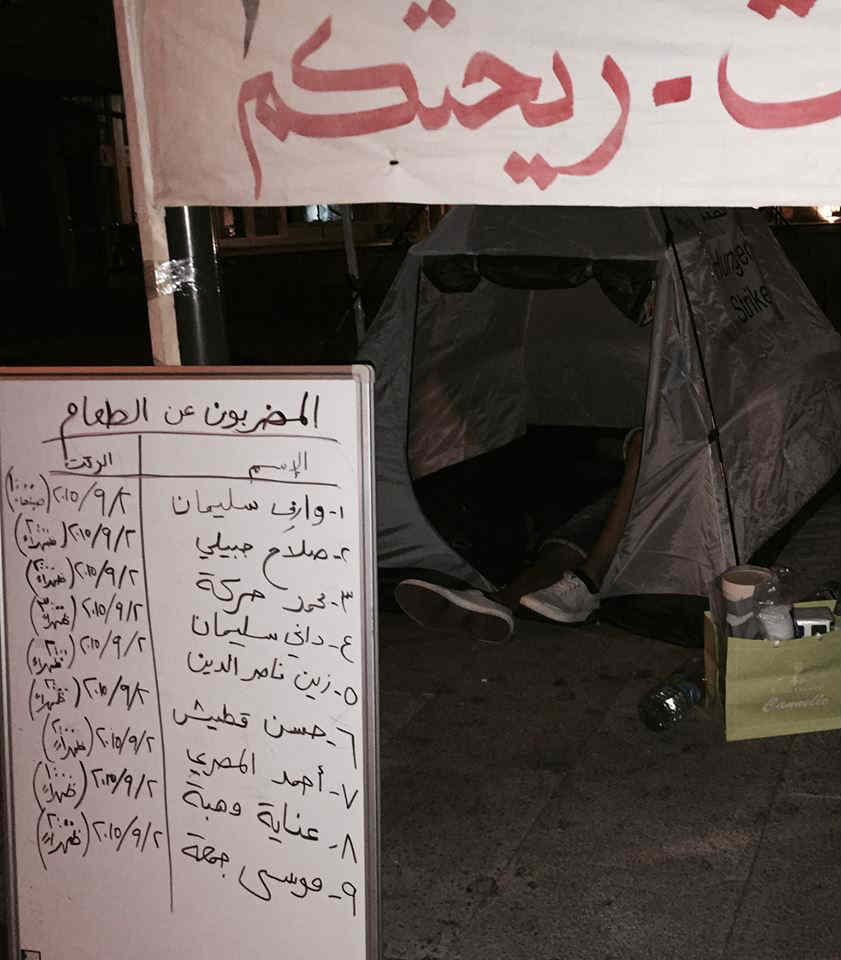 ت - ريحتكم
Hunger
Strike
المضربون عن الطعام
الإسم الوقت
١- وارف سليمان ٢٠١٥/٩/٢ (١٠:٠٠ صباحاً)
٢- صلاح جبيلي ٢٠١٥/٩/٢ (٢:٠٠ ظهراً)
٣- محمد حركة ٢٠١٥/٩/٢ (٢:٠٠ ظهراً)
٤- داني سليمان ٢٠١٥/٩/٢ (ظهراً)
٥- زين ناصر الدين ٢٠١٥/٩/٢ (ظهراً)
٦- حسن قطيش ٢٠١٥/٩/٢ (٢:٠٠ ظهراً)
٧- أحمد المصري ٢٠١٥/٩/٢ (٢:٠٠ ظهراً)
٨- عناية وهبة ٢٠١٥/٩/٢ (ظهراً)
٩- موسى جمعة ٢٠١٥/٩/٢ (٢:٠٠ ظهراً)
Cannelle